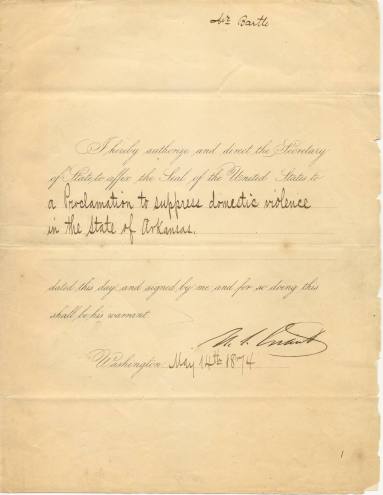 Mr Bartle
I hereby authorize and direct the Secretary
of State to affix the Seal of the United States to
a Proclamation to suppress domestic violence
in the State of Arkansas.
dated this day, and signed by me and for so doing this
shall be his warrant.
U. S. Grant
Washington May 14th 1874
1